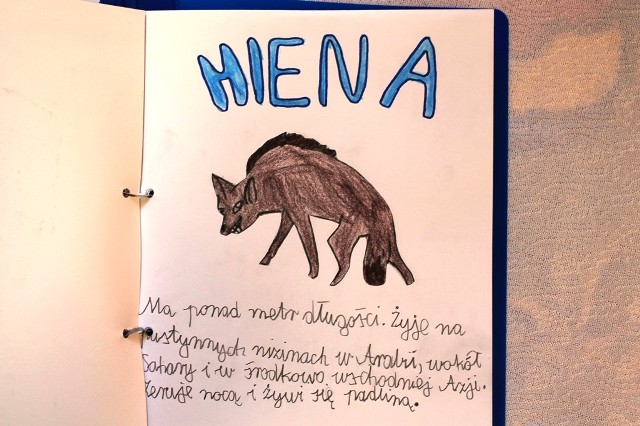 HIENA
Ma ponad metr długości. Żyje na
pustynnych nizinach w Arabii, wokół
Sahary i w środkowo wschodniej Azji.
Żeruje nocą i żywi się padliną.